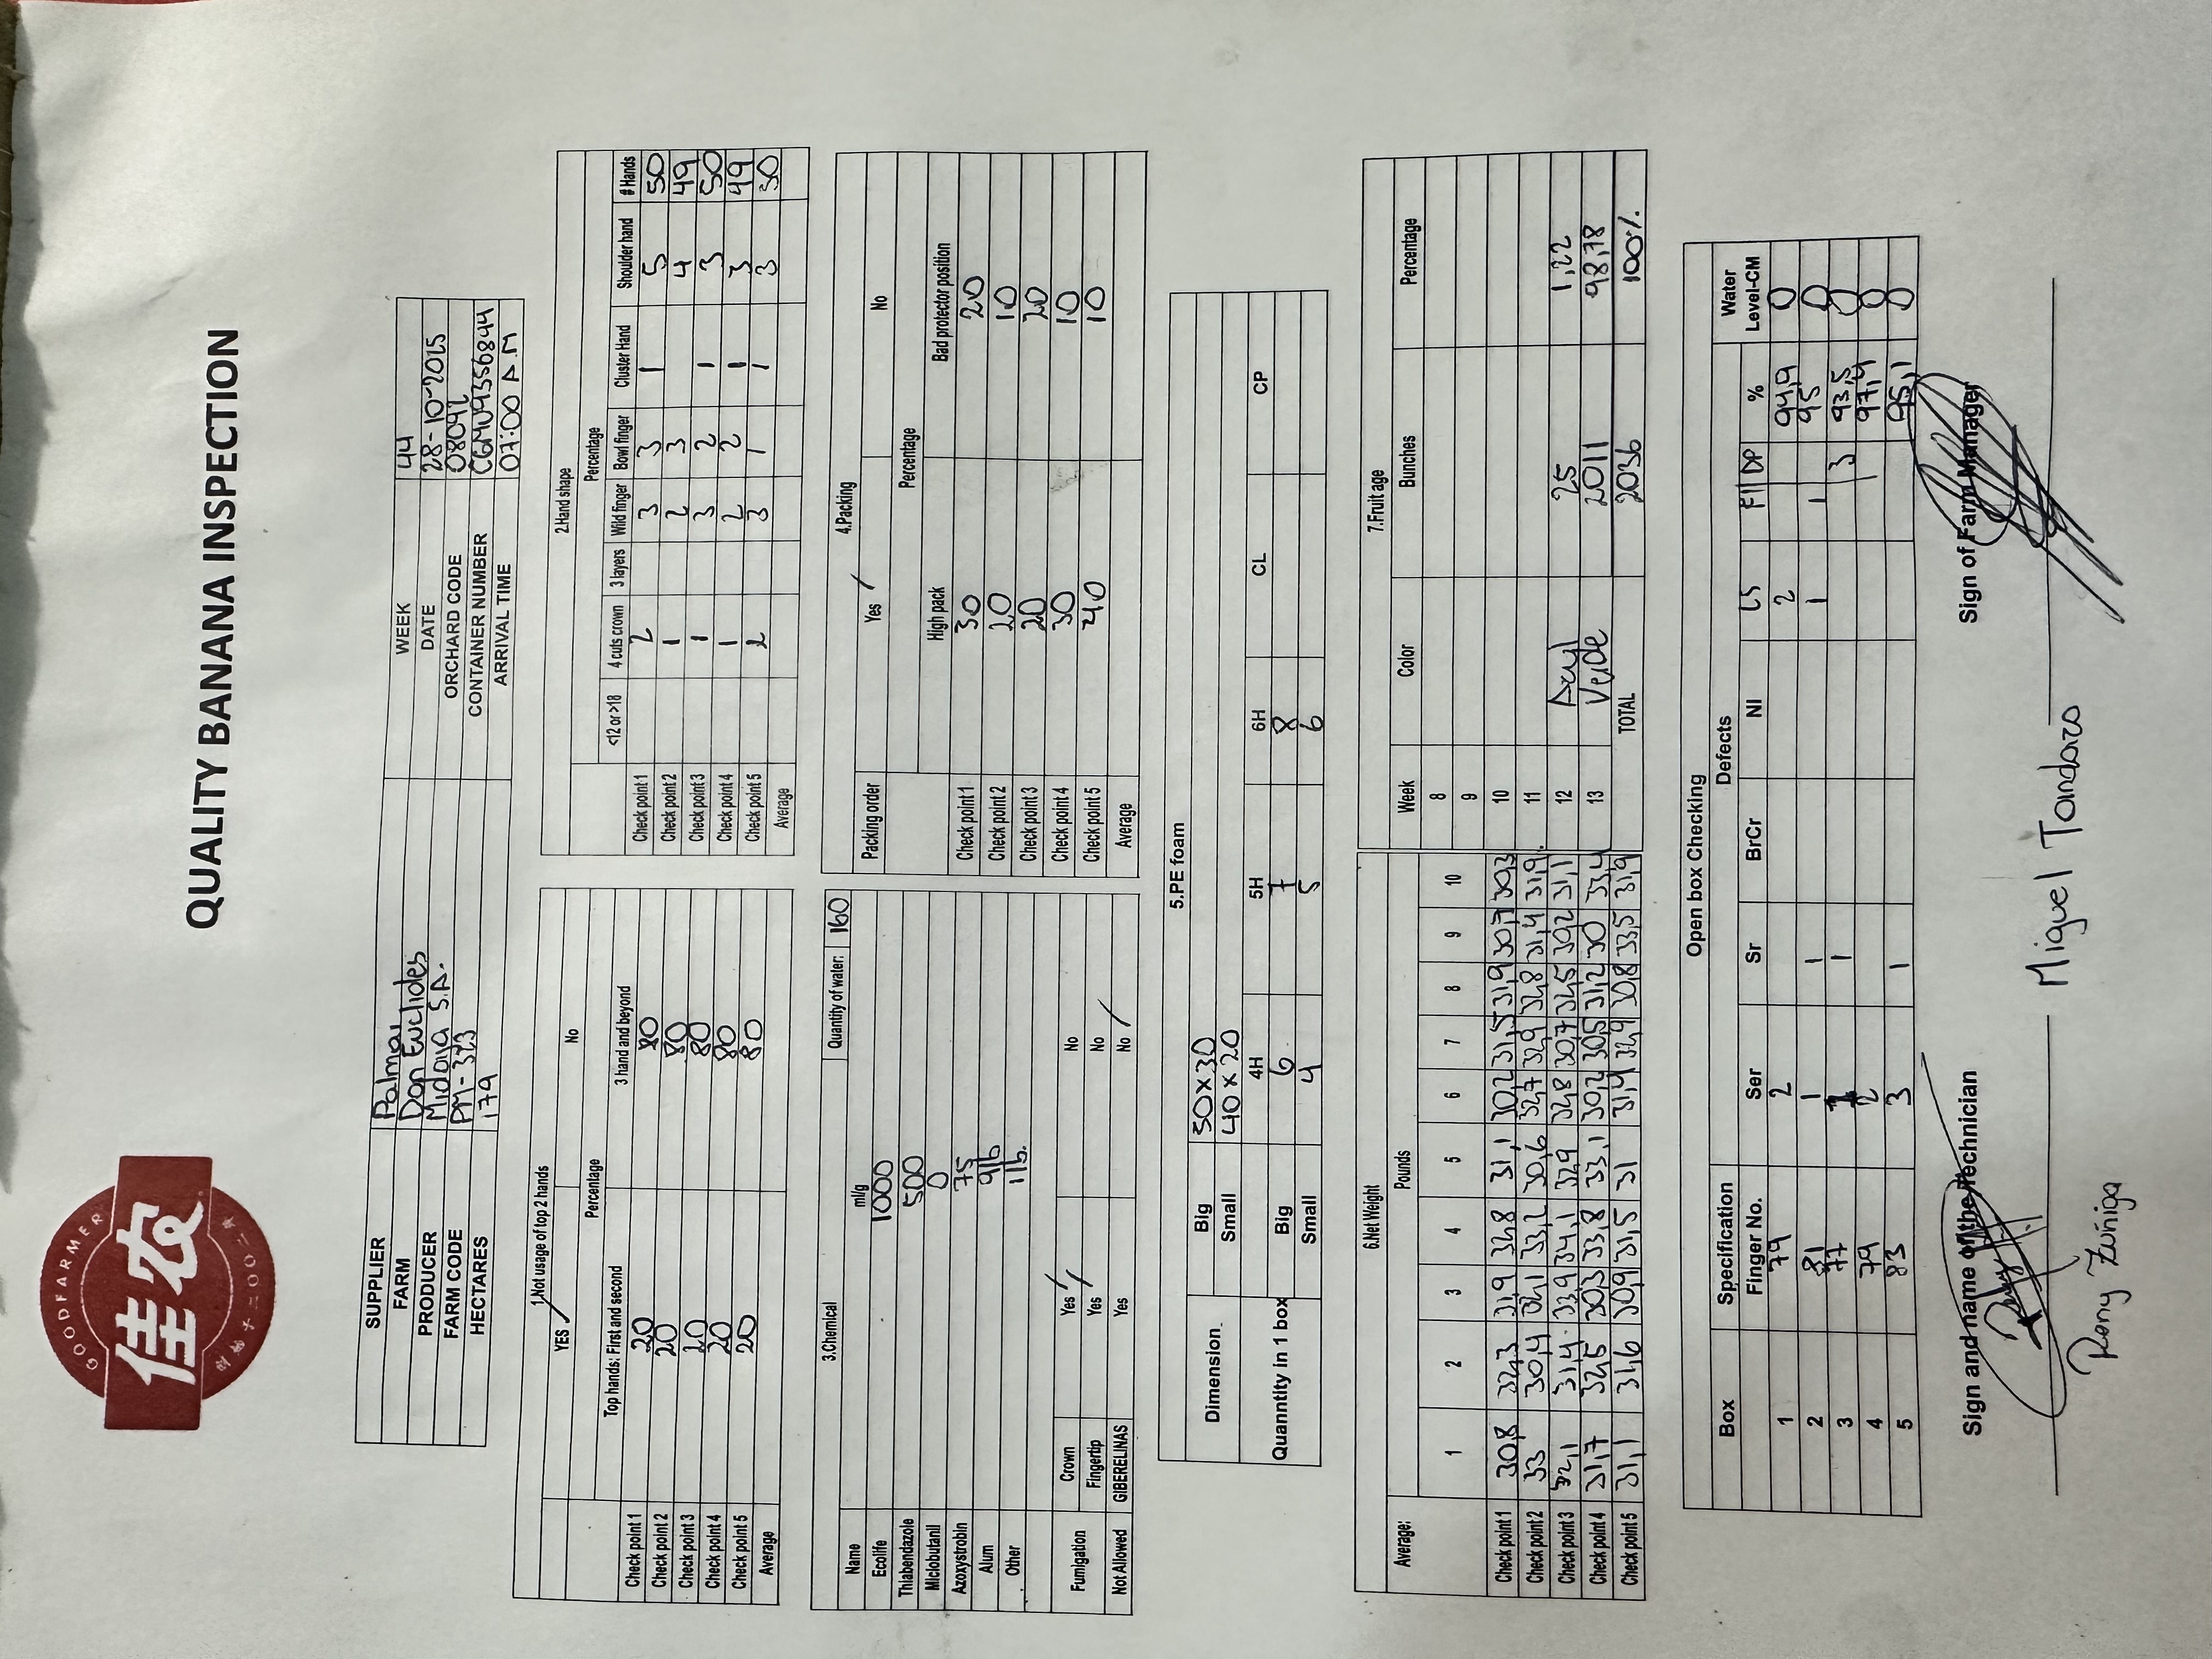 GOODFARMER
佳农
创始于二〇〇二年
QUALITY BANANA INSPECTION
SUPPLIER Palmar WEEK 44
FARM Don Euclides DATE 28-10-2025
PRODUCER S.A. ORCHARD CODE 08092
FARM CODE PM-323 CONTAINER NUMBER CGMU9356844
HECTARES 179 ARRIVAL TIME 07:00 A.M
1.Not usage of top 2 hands
YES ✓ No
Percentage
Top hands: First and second 3 hand and beyond
Check point 1 20 80
Check point 2 20 80
Check point 3 20 80
Check point 4 20 80
Check point 5 20 80
Average
2.Hand shape
Percentage
<12 or >18 4 cuts crown 3 layers Wild finger Bowl finger Cluster Hand Shoulder hand # Hands
Check point 1 2 3 3 1 5 50
Check point 2 1 2 3 4 49
Check point 3 1 3 2 1 3 50
Check point 4 1 2 2 1 3 49
Check point 5 2 3 1 1 3 50
Average
3.Chemical Quantity of water: 160
Name ml/g
Ecolife 1000
Thiabendazole 500
Miclobutanil 0
Azoxystrobin 75
Alum 9lb
Other 1lb.
Fumigation Crown Yes ✓ No
Fingertip Yes ✓ No
Not Allowed GIBERELINAS Yes No ✓
4.Packing
Packing order Yes ✓ No
Percentage
High pack Bad protector position
Check point 1 30 20
Check point 2 20 10
Check point 3 20 20
Check point 4 30 10
Check point 5 40 10
Average
5.PE foam
Dimension Big 50x30
Small 40x20
4H 5H 6H CL CP
Quanntity in 1 box Big 6 7 8
Small 4 5 6
6.Net Weight
Average: Pounds
1 2 3 4 5 6 7 8 9 10
Check point 1 30,8 32,3 31,9 32,8 31,1 30,2 31,5 31,9 30,7 30,3
Check point 2 33 30,4 32,1 33,2 30,6 32,7 32,9 32,8 31,4 31,9
Check point 3 32,1 31,4 33,9 34,1 32,9 32,8 30,7 32,5 30,2 31,1
Check point 4 31,7 32,5 30,3 33,8 33,1 30,2 30,5 31,2 30 33,4
Check point 5 31,1 31,6 30,9 31,5 31 31,4 32,9 30,8 33,5 31,9
7.Fruit age
Week Color Bunches Percentage
8
9
10
11
12 Azul 25 1,22
13 Verde 2011 98,78
TOTAL 2036 100%
Open box Checking
Box Specification Defects Water
Finger No. Ser Sr BrCr NI LS FI DP % Level-CM
1 79 2 2 94,9 0
2 81 1 1 1 1 95 0
3 77 1 1 3 93,5 0
4 79 2 97,4 0
5 83 3 1 95,1 0
Sign and name of the Technician Sign of Farm Manager
Miguel Tandazo
Reny Zuñiga